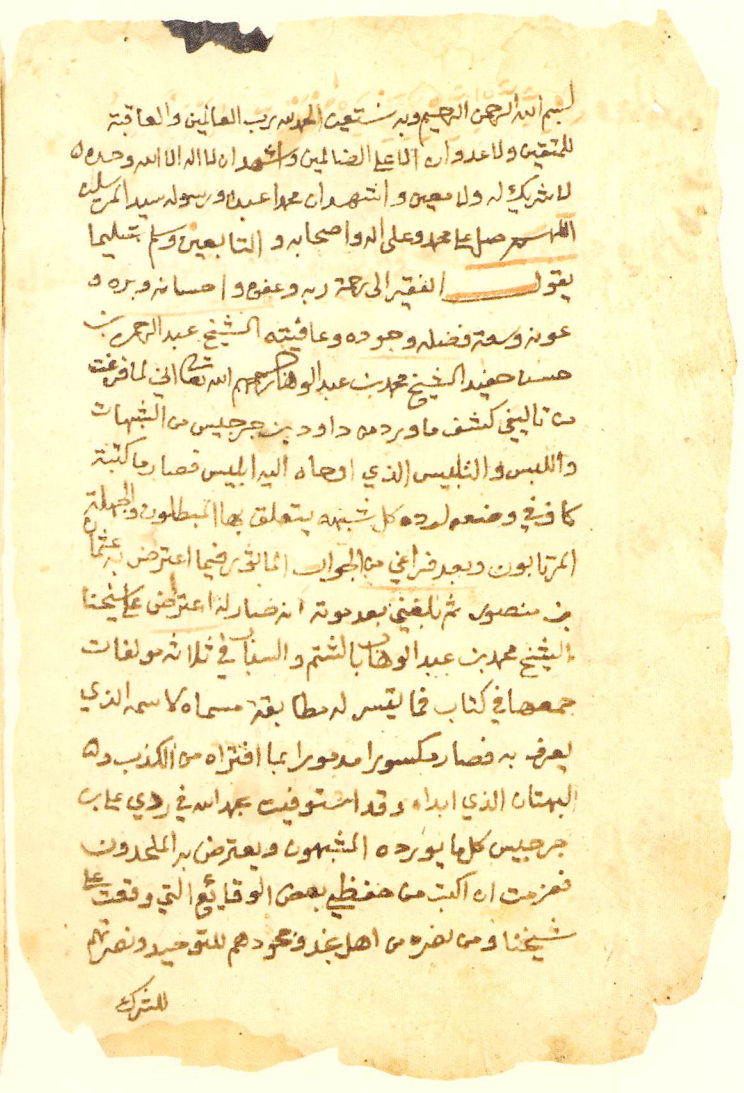 بسم الله الرحمن الرحيم وبه نستعين الحمد لله رب العالمين والعاقبة
للمتقين ولا عدوان الا على الضالمين واشهد ان لا اله الا الله وحده
لا شريك له ولا معين واشهد ان محمدا عبده ورسوله سيد المرسلين
اللهم صل على محمد وعلى اله واصحابه والتابعين وسلم تسليما
يقول الفقير الى رحمة ربه وعفوه واحسانه وبره و
عونه وسعة فضله وجوده وعافيته الشيخ عبد الرحمن بن
حسن حفيد الشيخ محمد بن عبد الوهاب رحمهم الله تعالى اني لما فرغت
من تاليفي كشف ما ورد من داود بن جرجيس من الشبهات
واللبس والتلبيس الذي اوحاه اليه ابليس فصار ما كتبته
كاف في وضعه لرده كل شبهه يتعلق بها المبطلون والجهلة
المرتابون وبعد فراغي من الجواب فيما اعترض به عثمان
بن منصور ثم بلغني بعد موته انه صار له اعتراض على شيخنا
الشيخ محمد بن عبد الوهاب بالشتم والسباب في ثلاثة مولفات
جمعها في كتاب فما تيسر له مطابقة مسماه لاسمه الذي
يعرف به فصار مكسورا مدمورا بما افتراه من الكذب و
البهتان الذي ابداه وقد استوفيت بحمد الله في ردي على بن
جرجيس كل ما يورده المشبهون ويعترض به الملحدون
فعزمت ان اكتب من حفظي بعض الوقائع التي وقعت على
شيخنا ومن نصره من اهل نجد وجحودهم للتوحيد ونصرتهم
للشرك